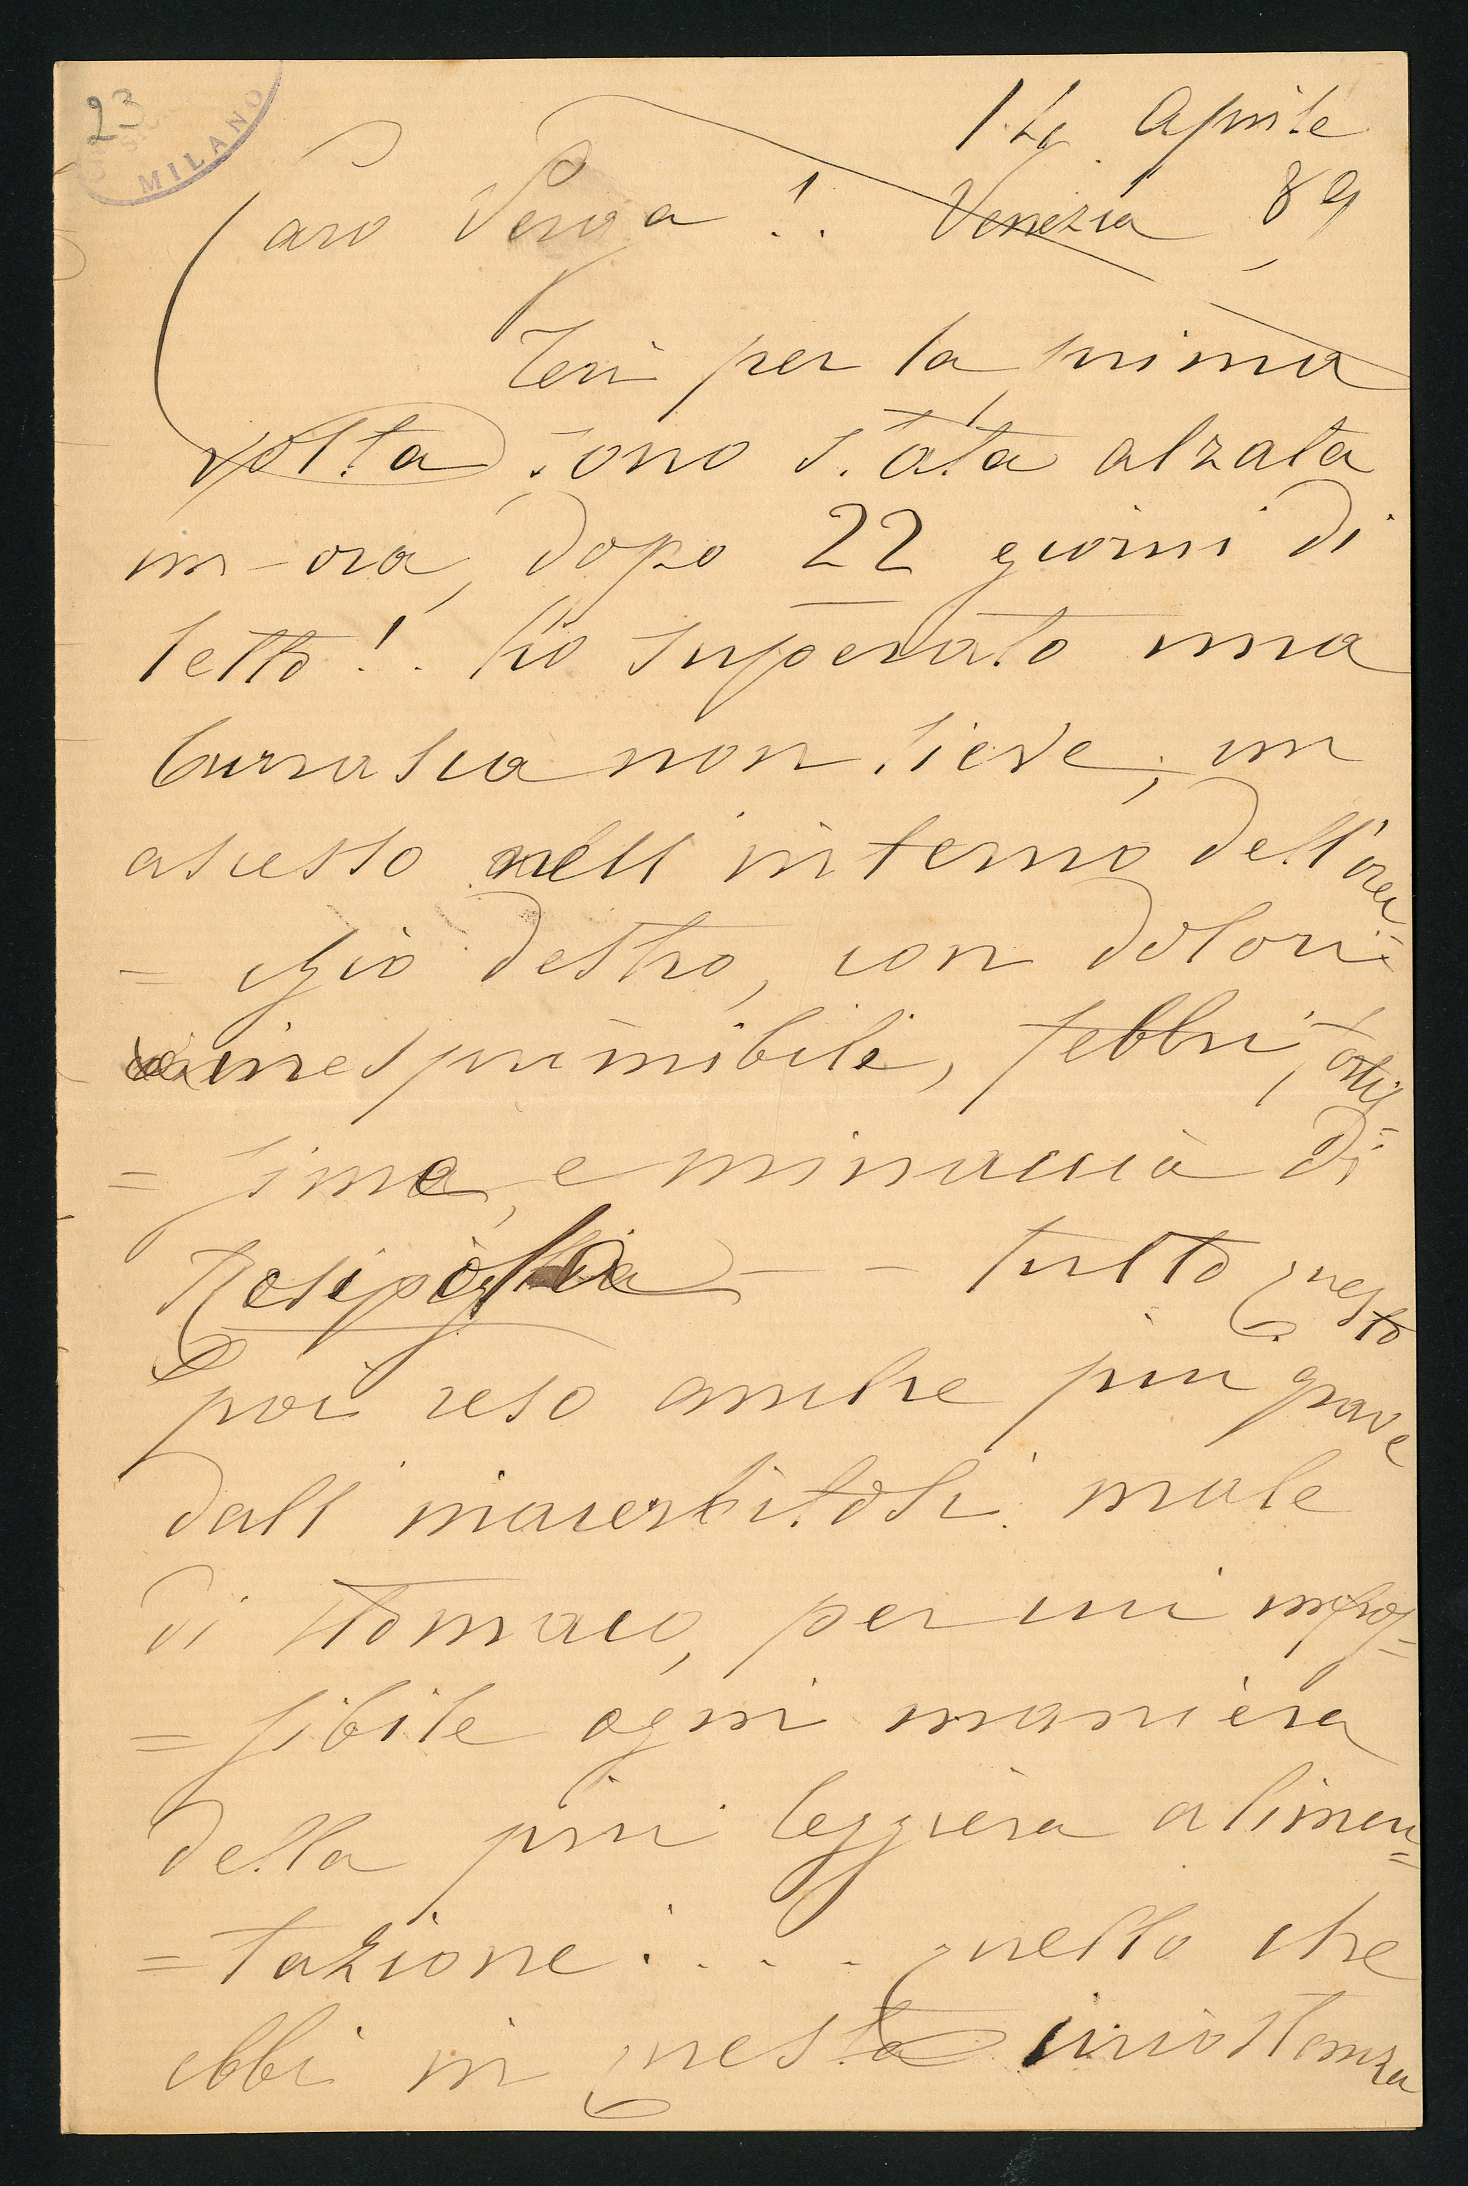 23
MILANO
14 Aprile
Caro Verga!. Venezia 89
Ieri per la prima
volta sono stata alzata
un-ora, dopo 22 giorni di
letto!. ho superato una
burrasca non lieve, un
ascesso nell interno dell'orec
= chio destro, con dolori
inesprimibili, febbri, fortis
= sime, e minaccia di
Resipola -- tutto questo
poi reso anche piu grave
dall inacerbitosi male
di stomaco, per cui impos=
= sibile ogni maniera
della piu leggiera alimen=
= tazione.... quello che
ebbi in questa circostanza